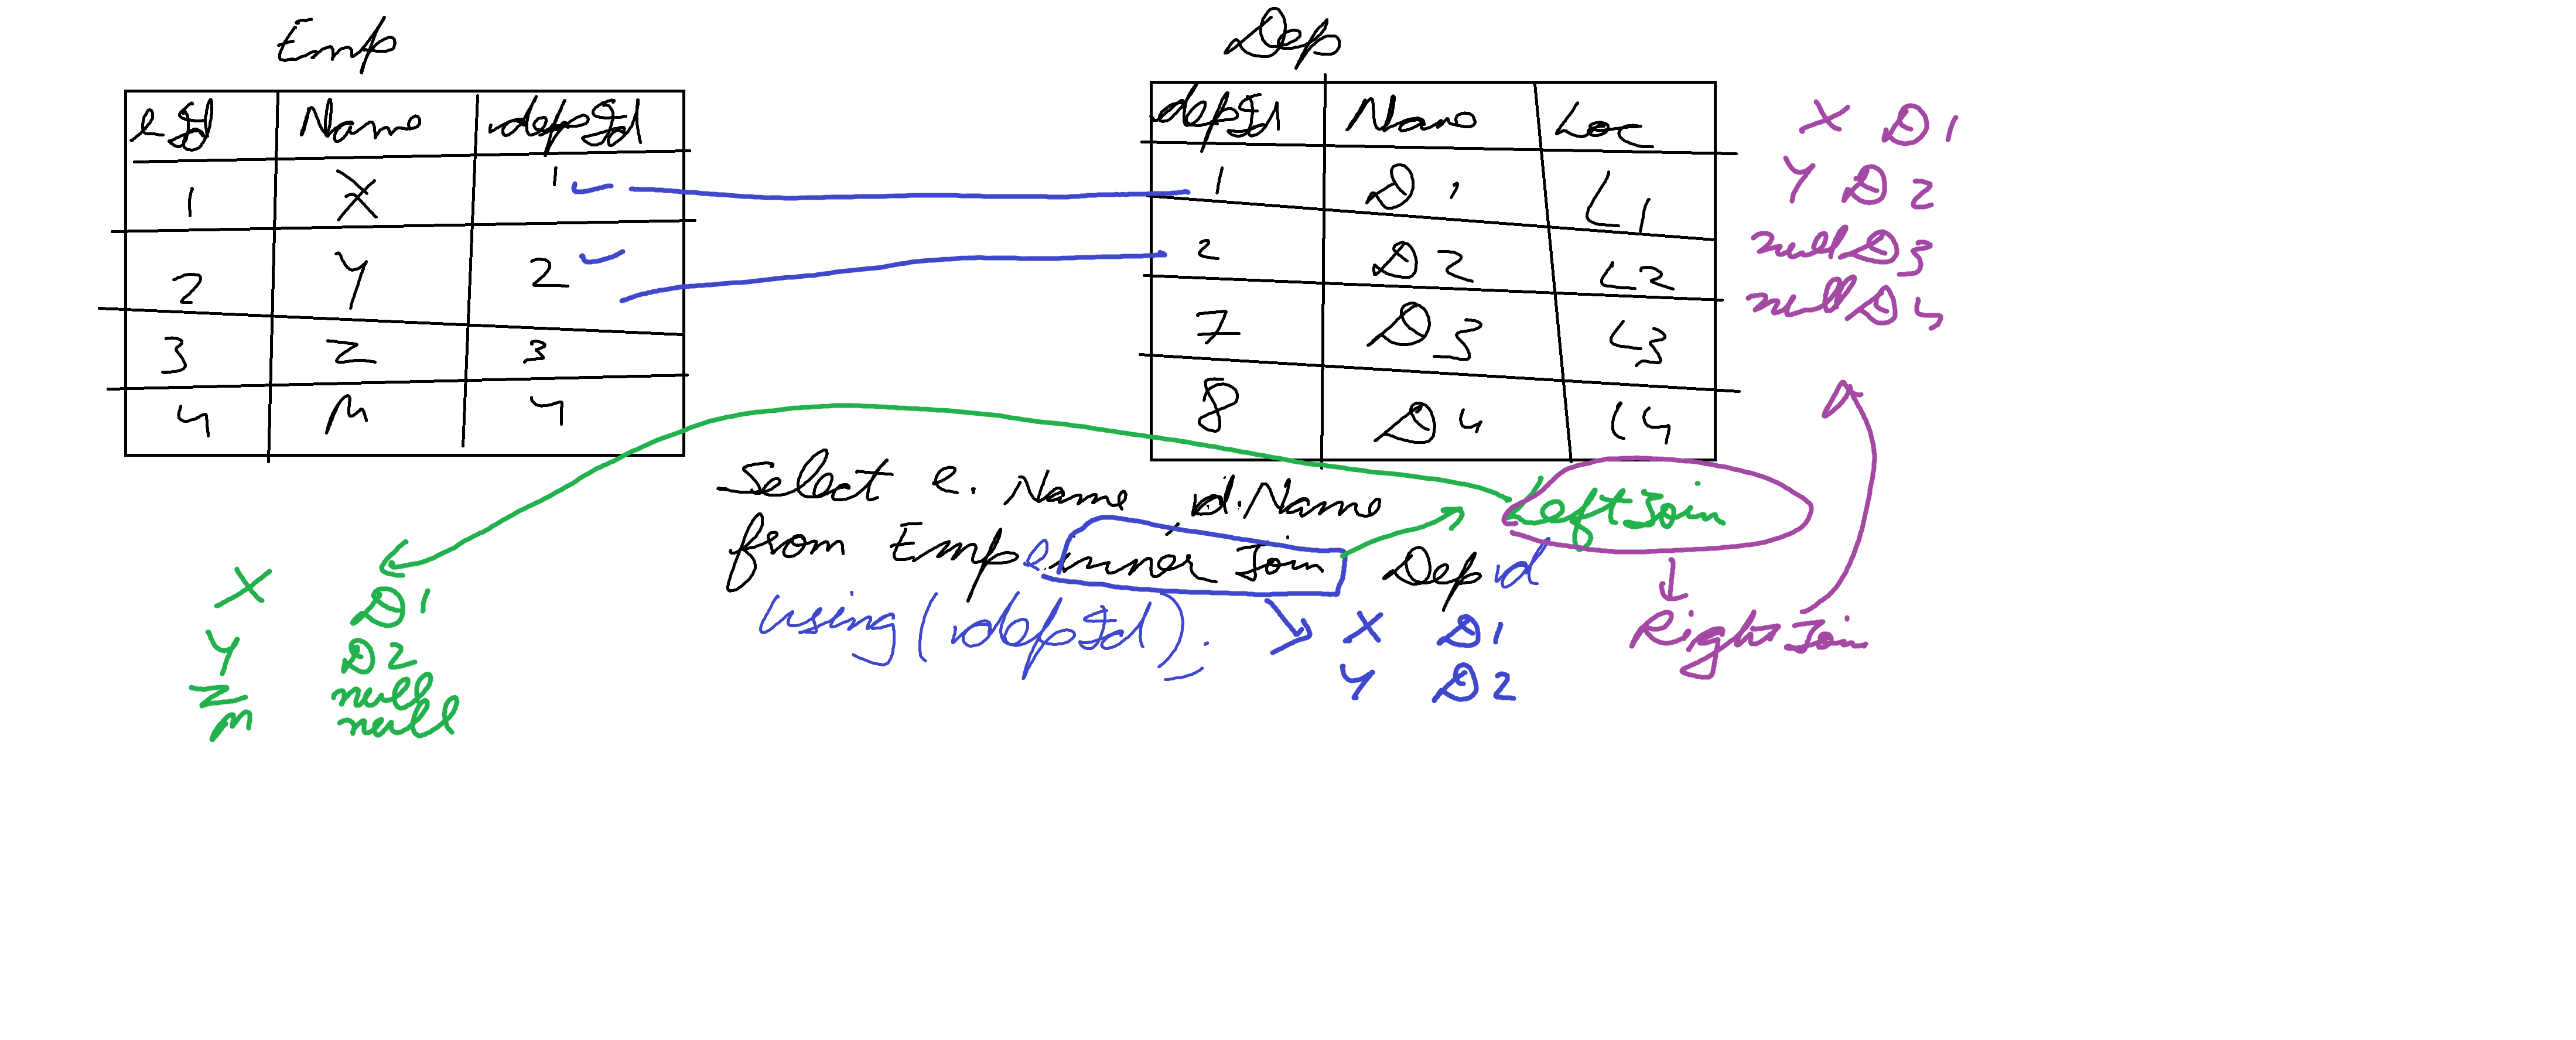 Emp
eId Name depId
1 X 1
2 Y 2
3 Z 3
4 M 4
Dep
depId Name Loc
1 D1 L1
2 D2 L2
7 D3 L3
8 D4 L4
X D1
Y D2
null D3
null D4
Select e.Name, d.Name
from Emp e inner Join Dep d
using(depId);
Left Join
Right Join
X D1
Y D2
X D1
Y D2
Z null
M null